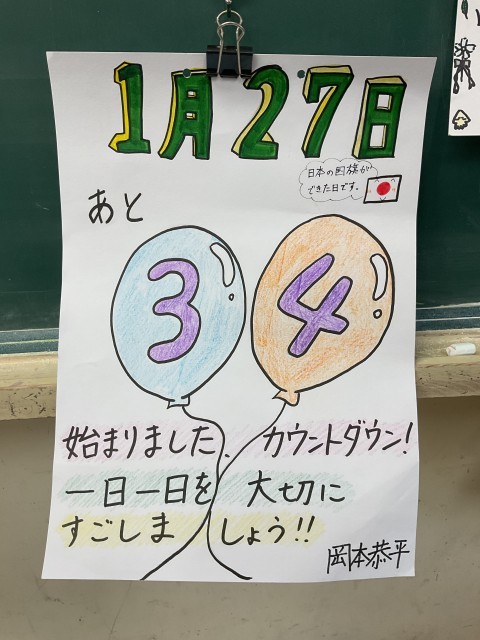 1月27日
日本の国旗が
できた日です。
あと
34
始まりました、カウントダウン!
一日一日を 大切に
すごしましょう!!
岡本恭平